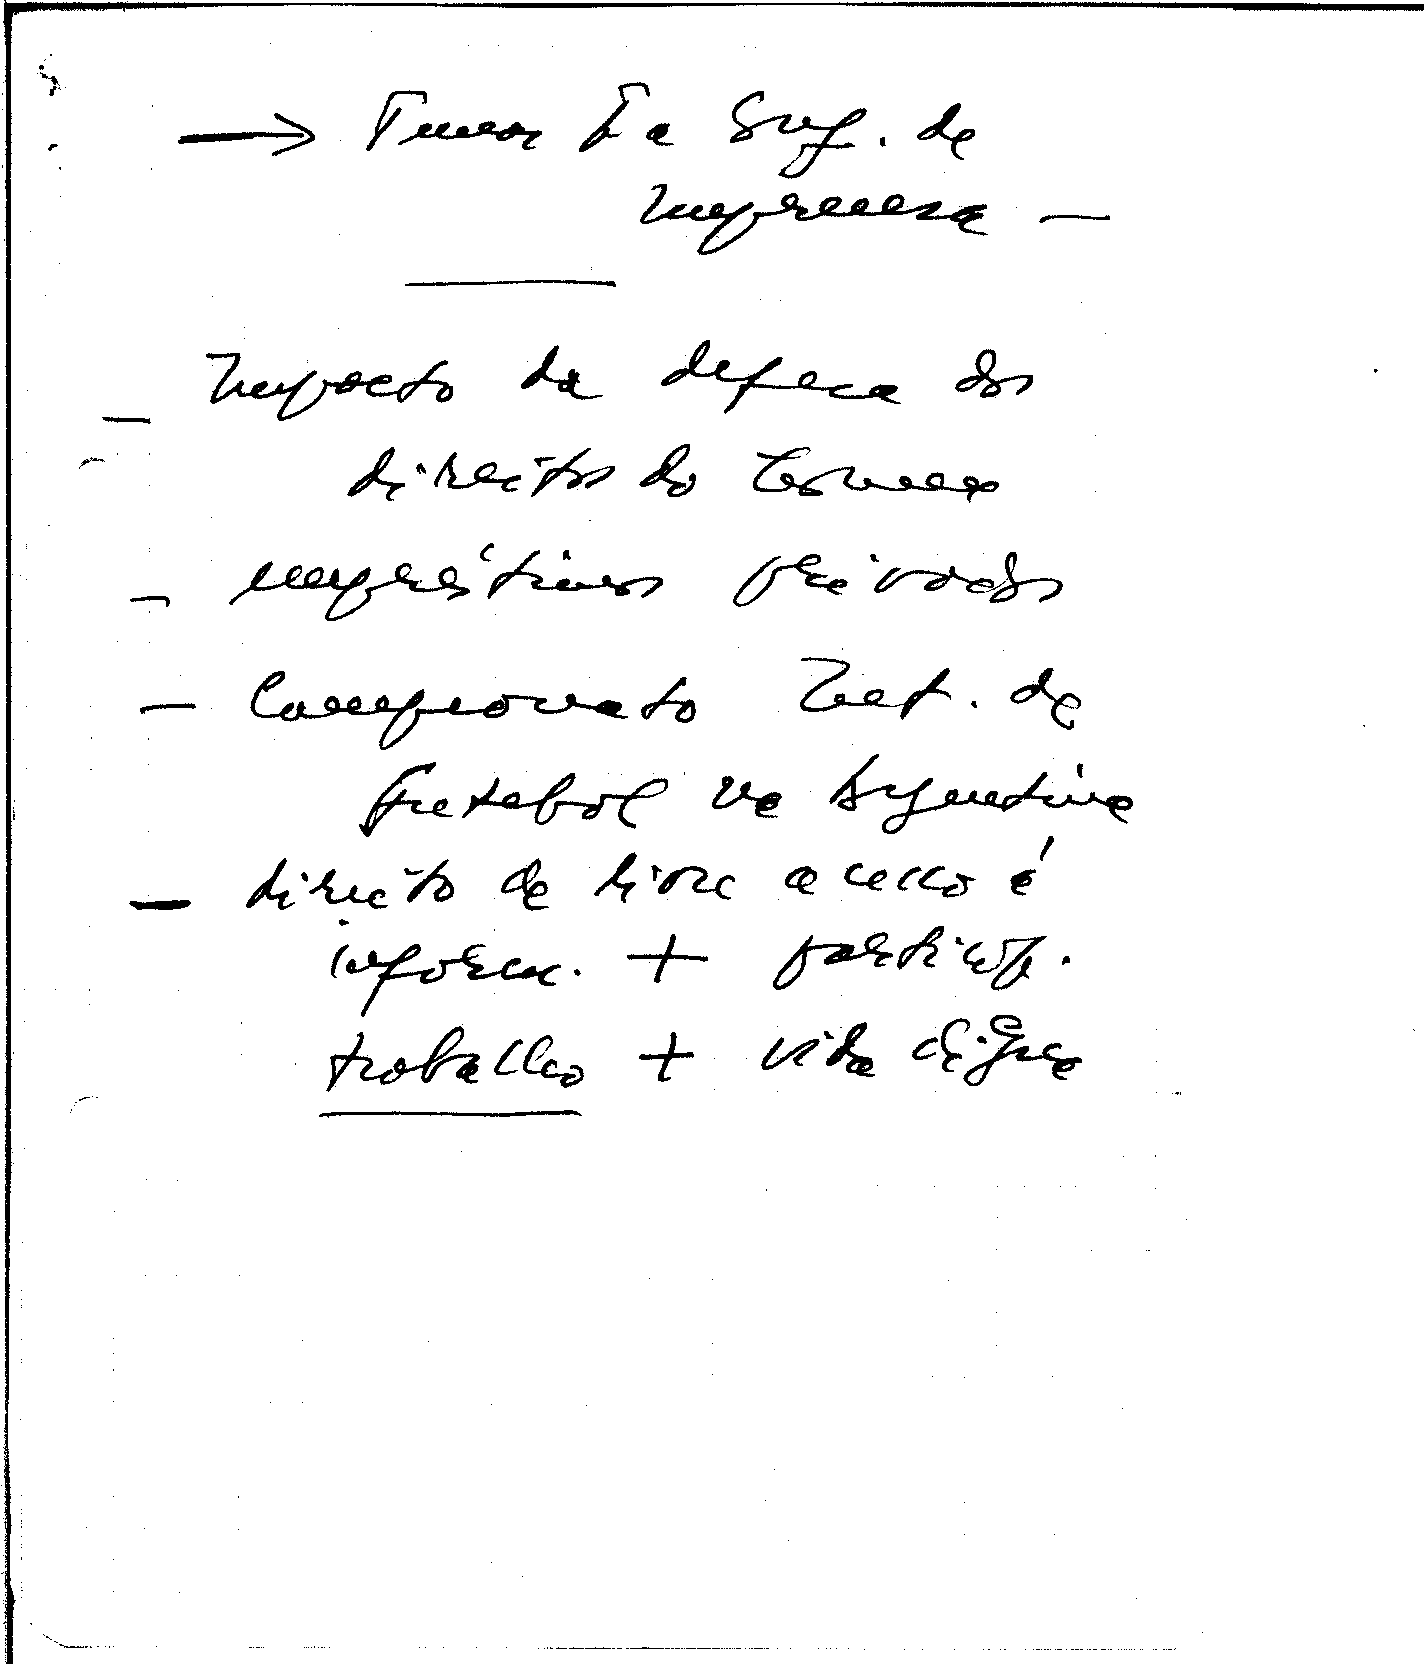 → Temas Pa Grup. de
Imprensa —
- Impacto da defesa dos
direitos do homem
- empréstimos privados
- Campeonato Int. de
Futebol na Argentina
- direito de livre acesso é
inform. + particip.
trabalho + vida digna